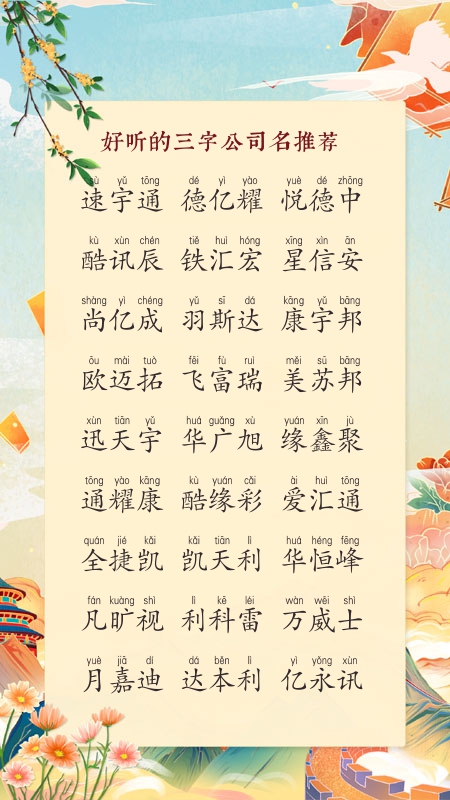 好听的三字公司名推荐
sù yǔ tōng dé yì yào yuè dé zhōng
速宇通 德亿耀 悦德中
kù xùn chén tiě huì hóng xīng xìn ān
酷讯辰 铁汇宏 星信安
shàng yì chéng yǔ sī dá kāng yǔ bāng
尚亿成 羽斯达 康宇邦
ōu mài tuò fēi fù ruì měi sū bāng
欧迈拓 飞富瑞 美苏邦
xùn tiān yǔ huá guǎng xù yuán xīn jù
迅天宇 华广旭 缘鑫聚
tōng yào kāng kù yuán cǎi ài huì tōng
通耀康 酷缘彩 爱汇通
quán jié kǎi kǎi tiān lì huá héng fēng
全捷凯 凯天利 华恒峰
fán kuàng shì lì kē léi wàn wēi shì
凡旷视 利科雷 万威士
yuè jiā dí dá běn lì yì yǒng xùn
月嘉迪 达本利 亿永讯